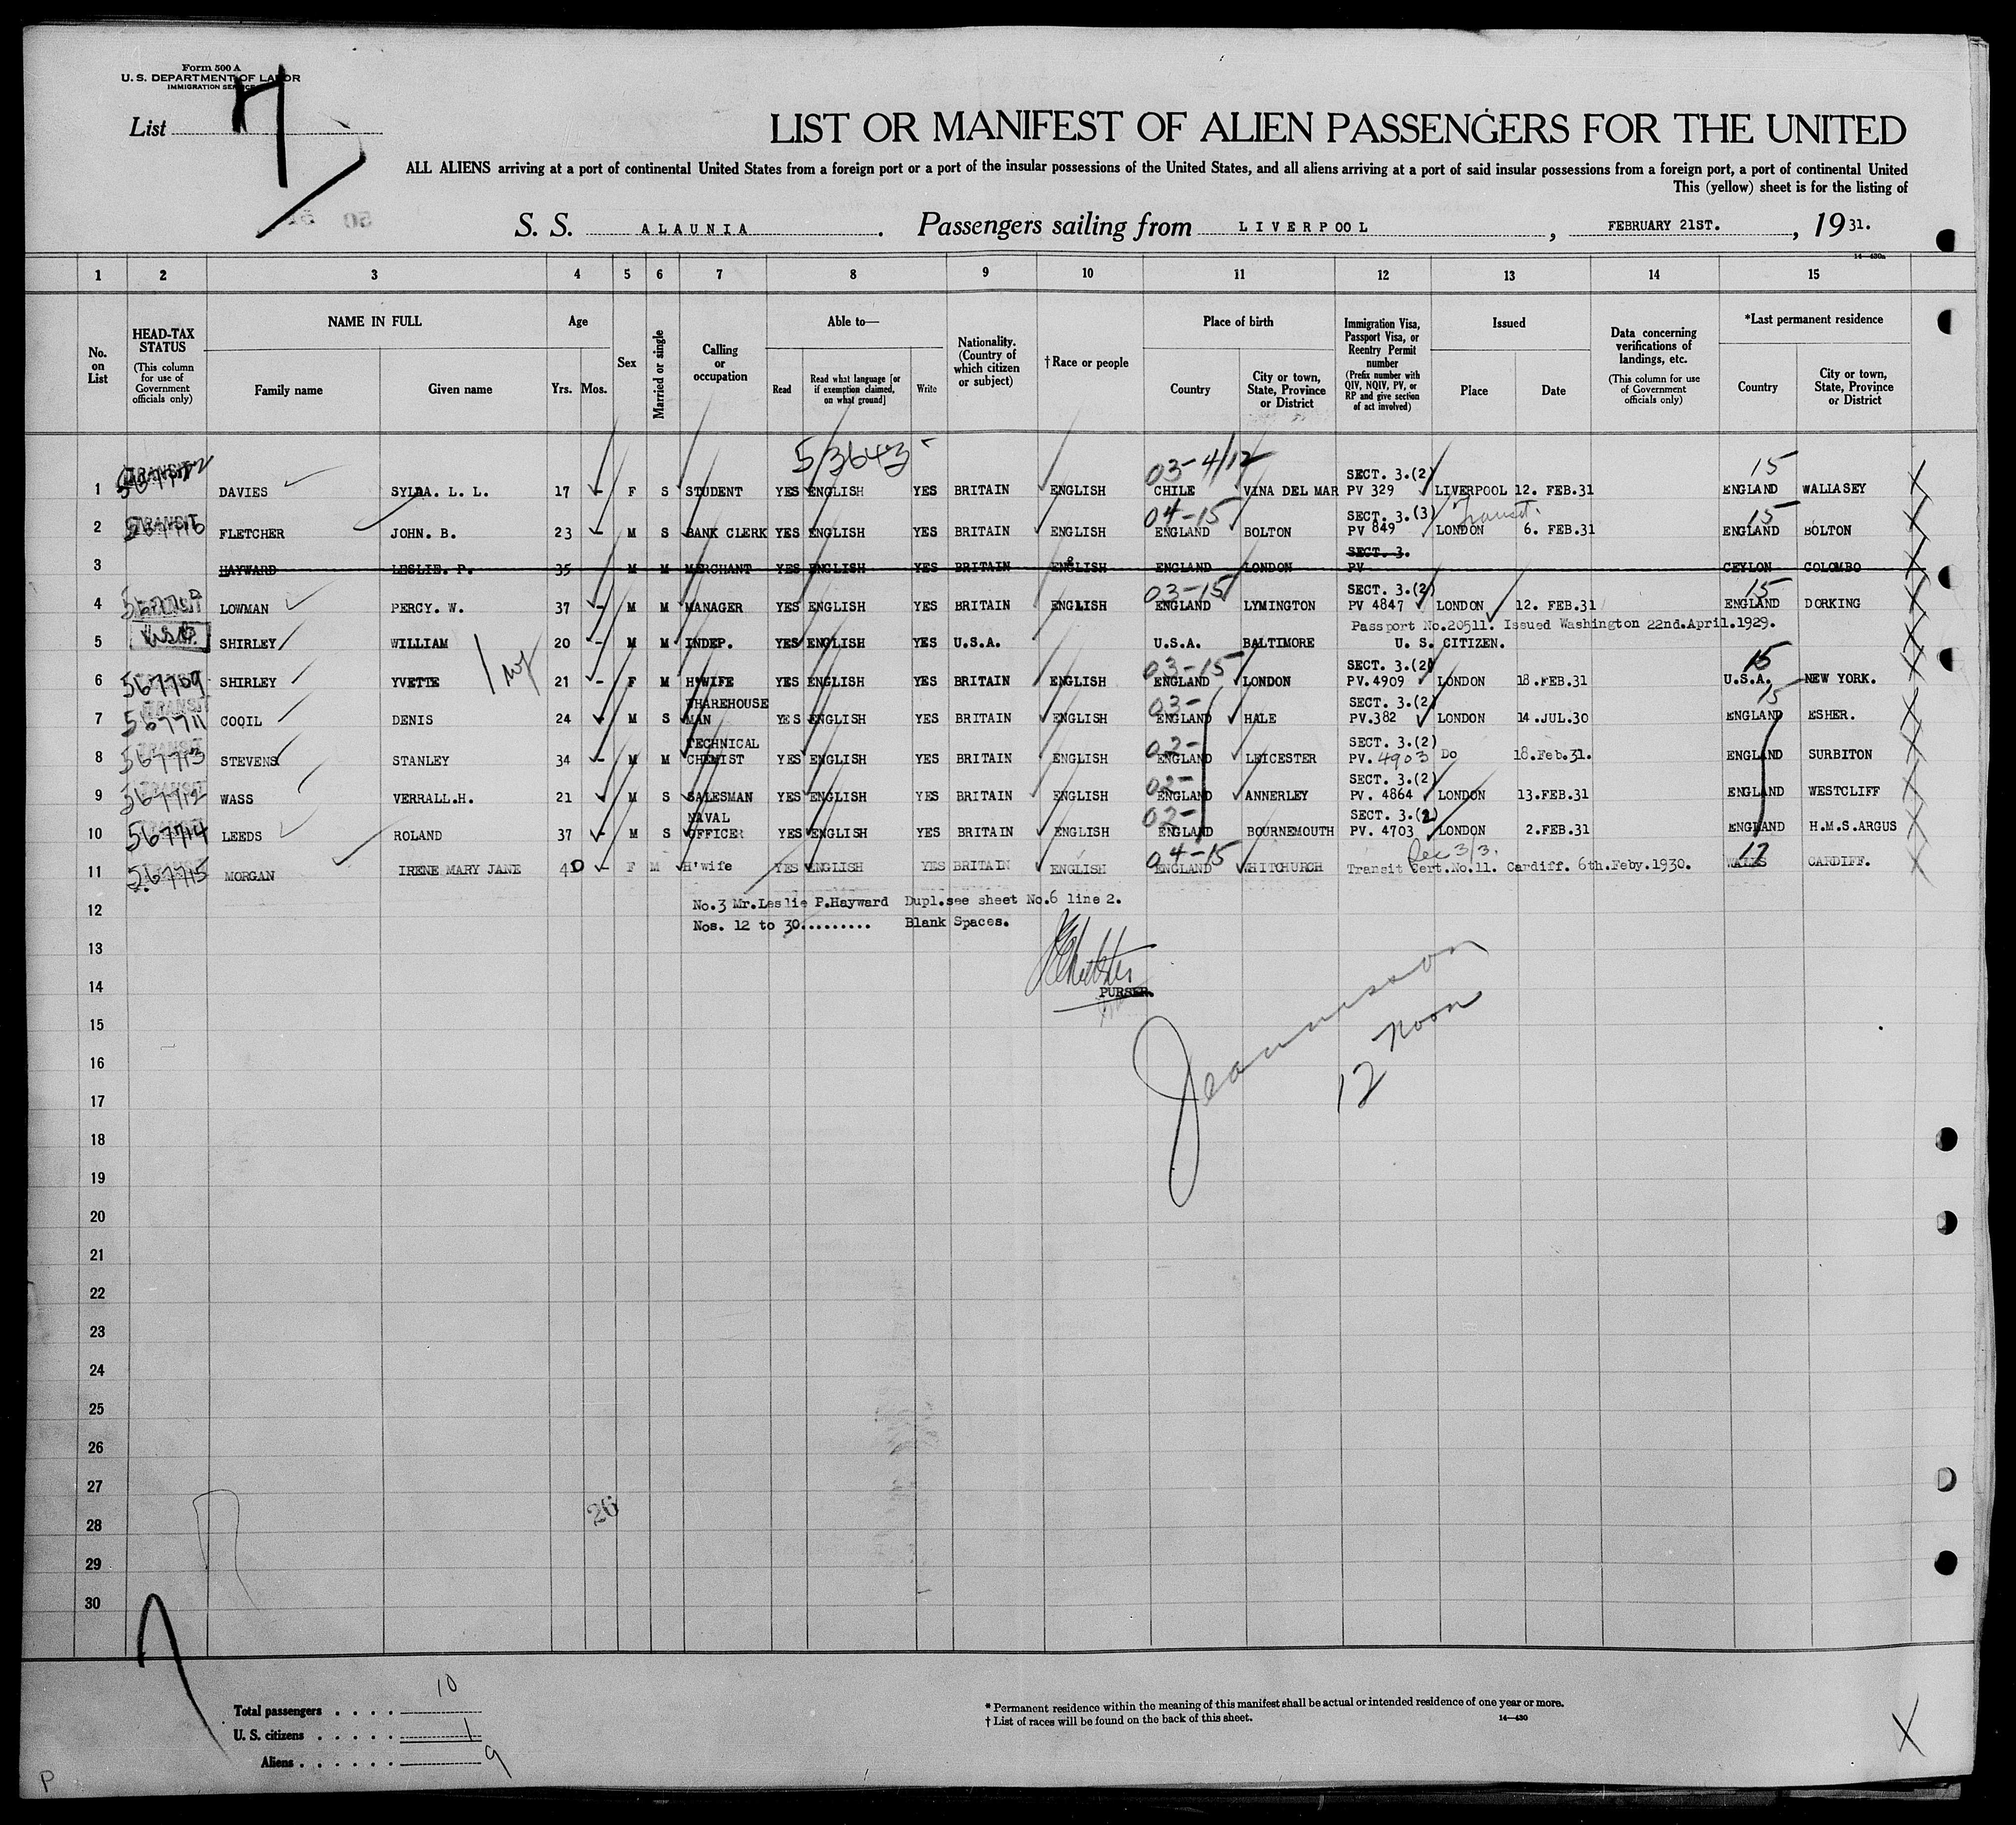 Form 500 A
U. S. DEPARTMENT OF LABOR
IMMIGRATION SERVICE
List 7
LIST OR MANIFEST OF ALIEN PASSENGERS FOR THE UNITED
ALL ALIENS arriving at a port of continental United States from a foreign port or a port of the insular possessions of the United States, and all aliens arriving at a port of said insular possessions from a foreign port, a port of continental United
This (yellow) sheet is for the listing of
S. S. ALAUNIA. Passengers sailing from LIVERPOOL, FEBRUARY 21ST., 1931.
14—430a
1 2 3 4 5 6 7 8 9 10 11 12 13 14 15
No. on List
HEAD-TAX STATUS (This column for use of Government officials only)
NAME IN FULL
Family name Given name
Age
Yrs. Mos.
Sex
Married or single
Calling or occupation
Able to—
Read Read what language [or if exemption claimed, on what ground] Write
Nationality. (Country of which citizen or subject)
† Race or people
Place of birth
Country City or town, State, Province or District
Immigration Visa, Passport Visa, or Reentry Permit number (Prefix number with QIV, NQIV, PV, or RP and give section of act involved)
Issued
Place Date
Data concerning verifications of landings, etc. (This column for use of Government officials only)
*Last permanent residence
Country City or town, State, Province or District
5/3643
03-4/12 SECT. 3.(2) 15
1 TRANSIT DAVIES SYLDA. L. L. 17 - F S STUDENT YES ENGLISH YES BRITAIN ENGLISH CHILE VINA DEL MAR PV 329 LIVERPOOL 12. FEB.31 ENGLAND WALLASEY
04-15 SECT. 3.(3) Transit. 15
2 TRANSIT 567716 FLETCHER JOHN. B. 23 - M S BANK CLERK YES ENGLISH YES BRITAIN ENGLISH ENGLAND BOLTON PV 849 LONDON 6. FEB.31 ENGLAND BOLTON
SECT. 3.
3 HAYWARD LESLIE. P. 35 M M MERCHANT YES ENGLISH YES BRITAIN ENGLISH ENGLAND LONDON PV CEYLON COLOMBO
03-15 SECT. 3.(2) 15
4 LOWMAN PERCY. W. 37 - M M MANAGER YES ENGLISH YES BRITAIN ENGLISH ENGLAND LYMINGTON PV 4847 LONDON 12. FEB.31 ENGLAND DORKING
Passport No.20511. Issued Washington 22nd.April.1929.
5 SHIRLEY WILLIAM 20 - M M INDEP. YES ENGLISH YES U.S.A. U.S.A. BALTIMORE U. S. CITIZEN.
03-15 SECT. 3.(2) 15
6 567709 SHIRLEY YVETTE 21 - F M H'WIFE YES ENGLISH YES BRITAIN ENGLISH ENGLAND LONDON PV.4909 LONDON 18.FEB.31 U.S.A. NEW YORK.
TRANSIT WHAREHOUSE 03- SECT. 3.(2) 15
7 567711 COQIL DENIS 24 - M S MAN YES ENGLISH YES BRITAIN ENGLISH ENGLAND HALE PV.382 LONDON 14.JUL.30 ENGLAND ESHER.
TRANSIT TECHNICAL 02- SECT. 3.(2)
8 567713 STEVENS STANLEY 34 - M M CHEMIST YES ENGLISH YES BRITAIN ENGLISH ENGLAND LEICESTER PV. 4903 Do 18.Feb.31. ENGLAND SURBITON
02- SECT. 3.(2)
9 567712 WASS VERRALL.H. 21 M S SALESMAN YES ENGLISH YES BRITAIN ENGLISH ENGLAND ANNERLEY PV. 4864 LONDON 13.FEB.31 ENGLAND WESTCLIFF
NAVAL 02- SECT. 3.(2)
10 567714 LEEDS ROLAND 37 - M S OFFICER YES ENGLISH YES BRITAIN ENGLISH ENGLAND BOURNEMOUTH PV. 4703 LONDON 2.FEB.31 ENGLAND H.M.S.ARGUS
04-15 Sec 3/3. 17
11 567715 MORGAN IRENE MARY JANE 40 - F M H'wife YES ENGLISH YES BRITAIN ENGLISH ENGLAND WHITCHURCH Transit Cert.No.11. Cardiff. 6th.Feby.1930. WALES CARDIFF.
No.3 Mr.Leslie P.Hayward Dupl.see sheet No.6 line 2.
12
Nos. 12 to 30......... Blank Spaces.
13
14
PURSER.
15
Jeannisson
12 noon
16
17
18
19
20
21
22
23
24
25
26
27
26
28
29
30
Total passengers . . . . 10
U. S. citizens . . . . . 1
Aliens . . . . . . 9
* Permanent residence within the meaning of this manifest shall be actual or intended residence of one year or more.
† List of races will be found on the back of this sheet.
14—430
P